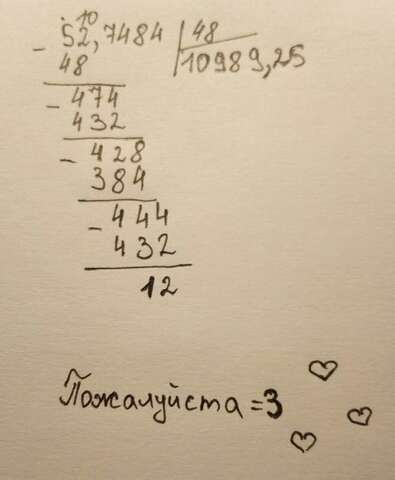 10
- 52,7484 | 48
48 10989,25
- 474
432
- 428
384
- 444
432
12
Пожалуйста =3